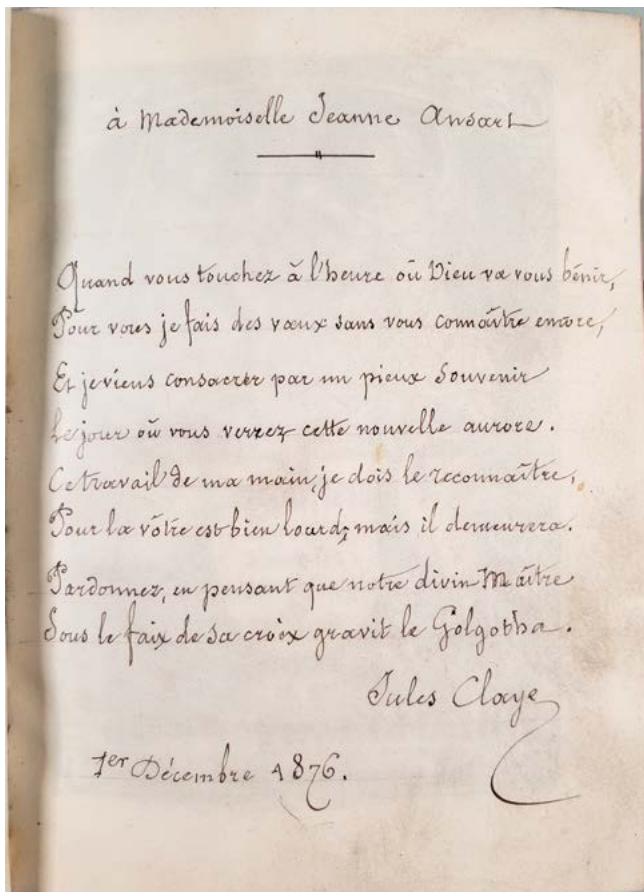 à Mademoiselle Jeanne Ansart
Quand vous touchez à l'heure où Dieu va vous bénir,
Pour vous je fais des vœux sans vous connaître encore,
Et je viens consacrer par un pieux Souvenir
Le jour où vous verrez cette nouvelle aurore.
Ce travail de ma main, je dois le reconnaître,
Pour la vôtre est bien lourd; mais il demeurera.
Pardonnez, en pensant que notre divin Maître
Sous le faix de sa croix gravit le Golgotha.
Jules Claye
1er Décembre 1876.